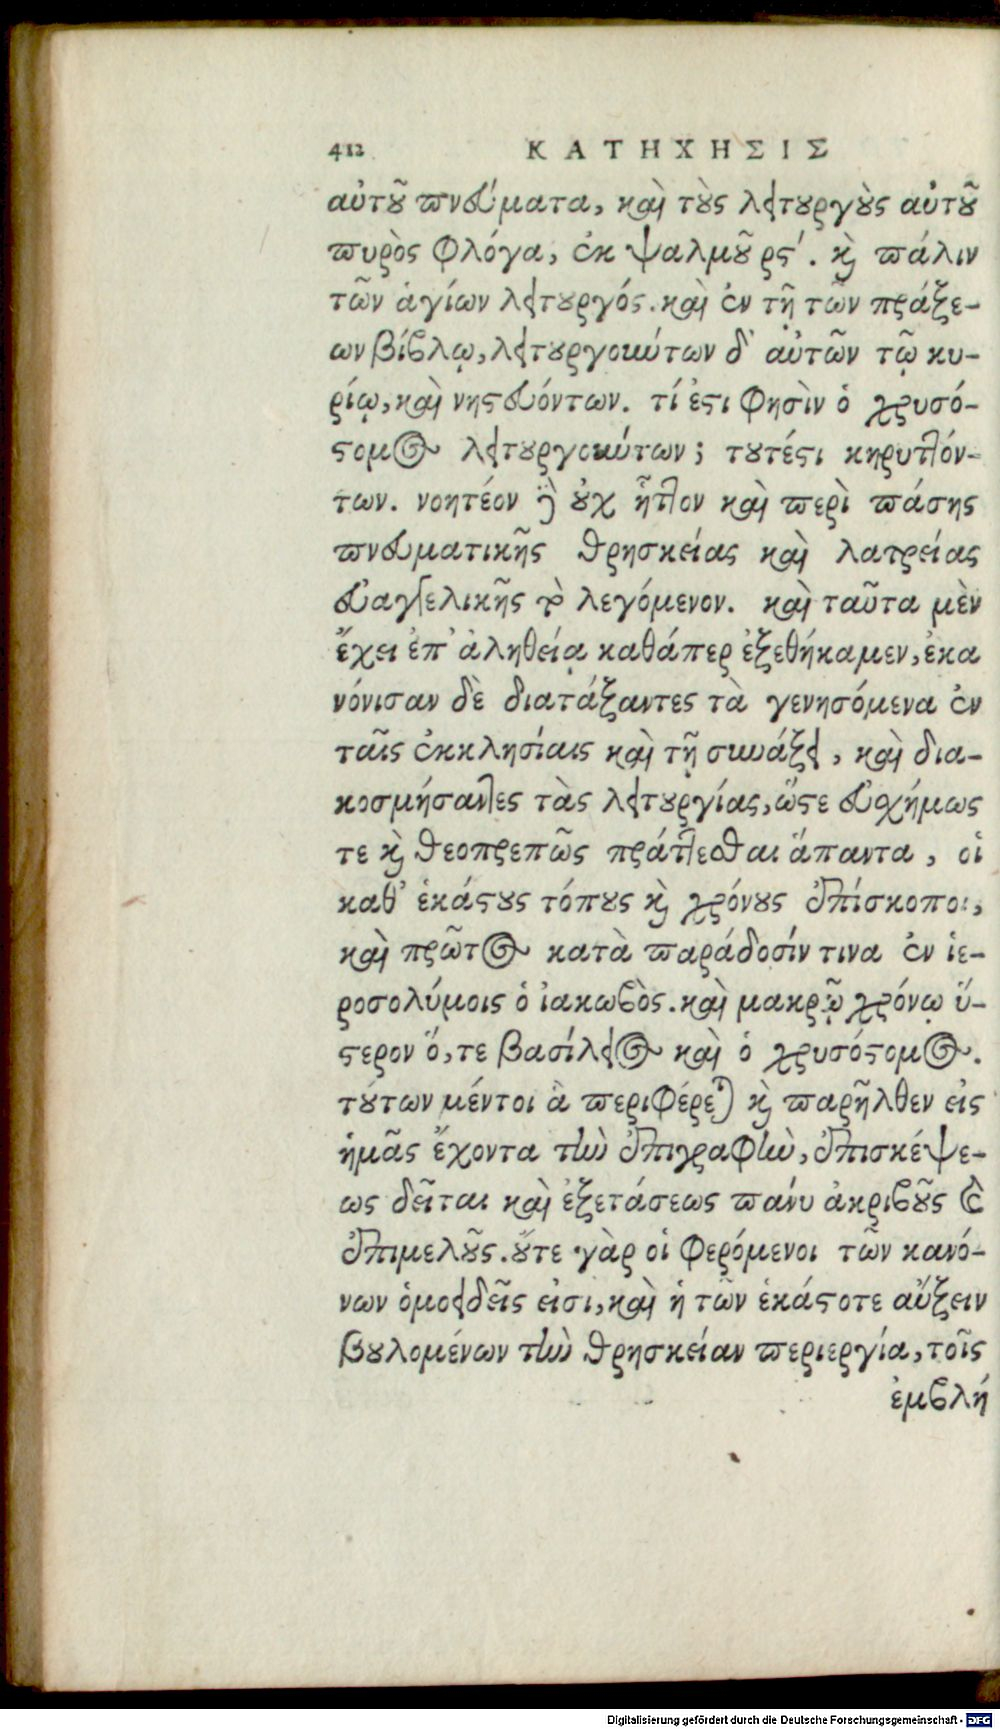 412 ΚΑΤΗΧΗΣΙΣ
αὐτοῦ πνεύματα, καὶ τοὺς λειτουργοὺς αὐτοῦ
πυρὸς φλόγα, ἐκ ψαλμοῦ ρϛʹ. καὶ πάλιν
τῶν ἁγίων λειτουργός. καὶ ἐν τῇ τῶν πράξε-
ων βίβλῳ, λειτουργούντων δ' αὐτῶν τῷ κυ-
ρίῳ, καὶ νηστευόντων. τί ἐστι φησὶν ὁ χρυσό-
στομος λειτουργούντων; τουτέστι κηρυττόν-
των. νοητέον δὲ οὐχ ἧττον καὶ περὶ πάσης
πνευματικῆς θρησκείας καὶ λατρείας
εὐαγγελικῆς τὸ λεγόμενον. καὶ ταῦτα μὲν
ἔχει ἐπ' ἀληθείᾳ καθάπερ ἐξεθήκαμεν, ἐκα
νόνισαν δὲ διατάξαντες τὰ γενησόμενα ἐν
ταῖς ἐκκλησίαις καὶ τῇ συνάξει, καὶ δια-
κοσμήσαντες τὰς λειτουργίας, ὥστε εὐσχήμως
τε καὶ θεοπρεπῶς πράττεσθαι ἅπαντα, οἱ
καθ' ἑκάστους τόπους καὶ χρόνους ἐπίσκοποι,
καὶ πρῶτος κατὰ παράδοσίν τινα ἐν ἱε-
ροσολύμοις ὁ ἰακωβὸς. καὶ μακρῷ χρόνῳ ὕ-
στερον ὅ, τε βασίλειος καὶ ὁ χρυσόστομος.
τούτων μέντοι ἃ περιφέρεται καὶ παρῆλθεν εἰς
ἡμᾶς ἔχοντα τὴν ἐπιγραφὴν, ἐπισκέψε-
ως δεῖται καὶ ἐξετάσεως πάνυ ἀκριβοῦς καὶ
ἐπιμελοῦς. οὔτε γὰρ οἱ φερόμενοι τῶν κανό-
νων ὁμοειδεῖς εἰσι, καὶ ἡ τῶν ἑκάστοτε αὔξειν
βουλομένων τὴν θρησκείαν περιεργία, τοῖς
ἐμβλή
Digitalisierung gefördert durch die Deutsche Forschungsgemeinschaft - DFG